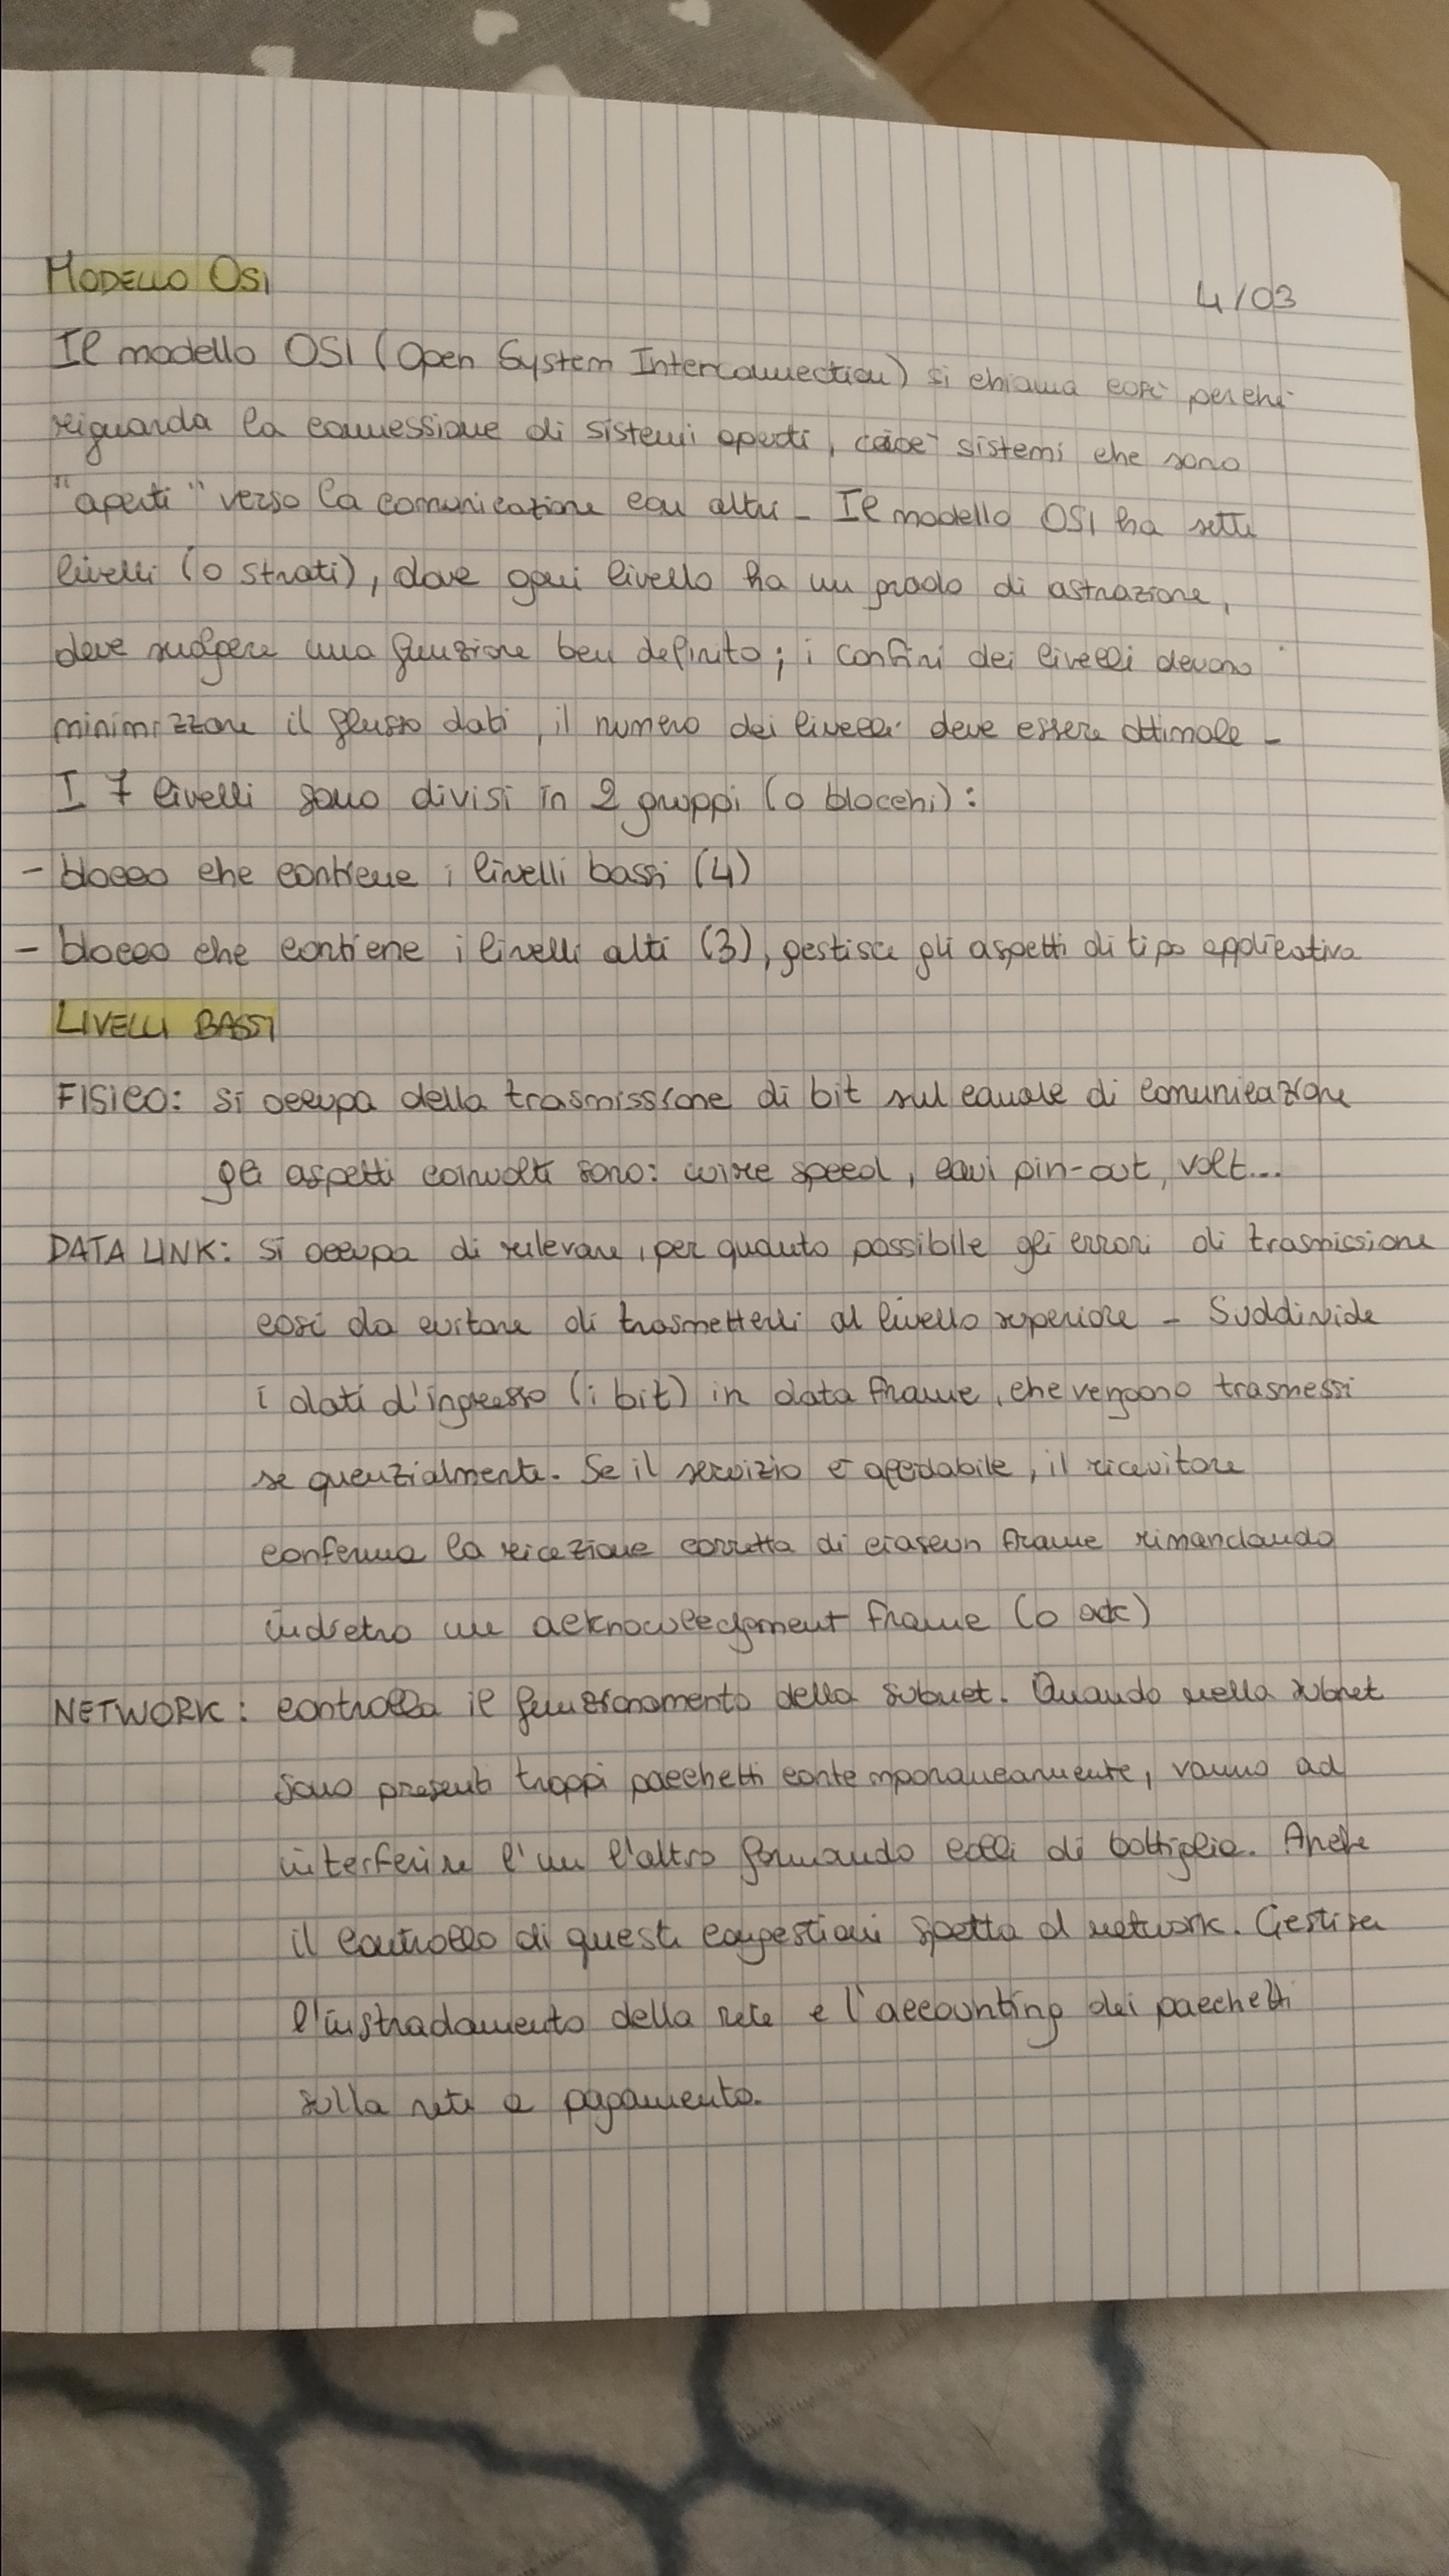 MODELLO OSI
4/03
Il modello OSI (Open System Interconnection) si chiama così perché
riguarda la connessione di sistemi aperti, cioè sistemi che sono
"aperti" verso la comunicazione con altri - Il modello OSI ha sette
livelli (o strati), dove ogni livello ha un grado di astrazione,
deve svolgere una funzione ben definita; i confini dei livelli devono
minimizzare il flusso dati, il numero dei livelli deve essere ottimale -
I 7 livelli sono divisi in 2 gruppi (o blocchi):
- blocco che contiene i livelli bassi (4)
- blocco che contiene i livelli alti (3), gestisce gli aspetti di tipo applicativo
LIVELLI BASSI
FISICO: si occupa della trasmissione di bit sul canale di comunicazione
gli aspetti coinvolti sono: wire speed, cavi pin-out, volt...
DATA LINK: si occupa di rilevare, per quanto possibile gli errori di trasmissione
così da evitare di trasmetterli al livello superiore - Suddivide
i dati d'ingresso (i bit) in data frame, che vengono trasmessi
sequenzialmente. Se il servizio è affidabile, il ricevitore
conferma la ricezione corretta di ciascun frame rimandando
indietro un acknowledgement frame (o ack)
NETWORK: controlla il funzionamento della subnet. Quando nella subnet
sono presenti troppi pacchetti contemporaneamente, vanno ad
interferire l'un l'altro formando colli di bottiglia. Anche
il controllo di questi congestioni spetta al network. Gestisce
l'instradamento della rete e l'accounting dei pacchetti
sulla rete a pagamento.